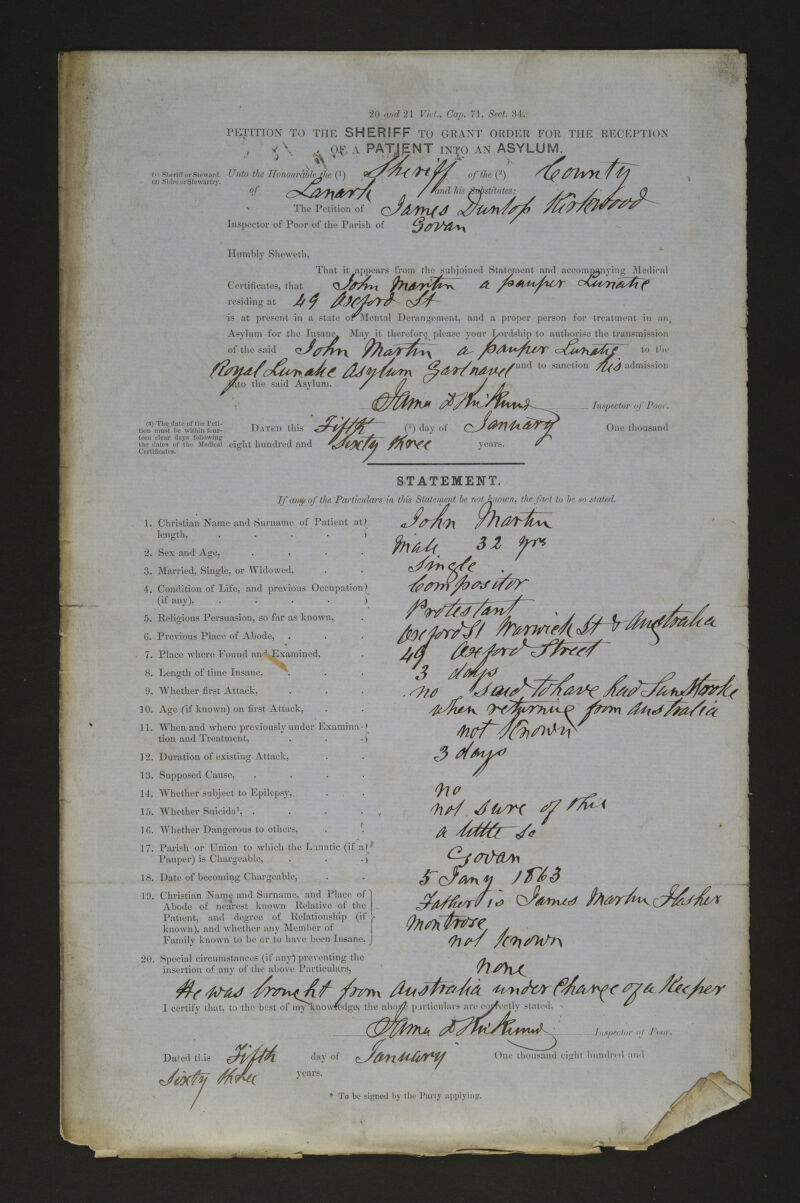 20 and 21 Vict., Cap. 71, Sect. 34.
PETITION TO THE SHERIFF TO GRANT ORDER FOR THE RECEPTION
OF A PATIENT INTO AN ASYLUM.
(1) Sheriff or Steward.
(2) Shire or Stewartry.
Unto the Honourable the (1) Sheriff of the (2) County
of Lanark and his Substitutes;
The Petition of James Dunlop Kirkwood
Inspector of Poor of the Parish of Govan
Humbly Sheweth,
That it appears from the subjoined Statement and accompanying Medical
Certificates, that John Martin a pauper Lunatic
residing at 49 Oxford St
is at present in a state of Mental Derangement, and a proper person for treatment in an
Asylum for the Insane. May it therefore please your Lordship to authorise the transmission
of the said John Martin a pauper Lunatic to the
Royal Lunatic Asylum Gartnavel and to sanction his admission
into the said Asylum.
James D Kirkwood Inspector of Poor.
(3) The date of the Peti-
tion must be within four-
teen clear days following
the dates of the Medical
Certificates.
DATED this Fifth (3) day of January One thousand
eight hundred and Sixty three years.
STATEMENT.
If any of the Particulars in this Statement be not known, the fact to be so stated.
1. Christian Name and Surname of Patient at length, John Martin
2. Sex and Age, Male 32 yrs
3. Married, Single, or Widowed, Single
4. Condition of Life, and previous Occupation (if any), Compositor
5. Religious Persuasion, so far as known, Protestant
6. Previous Place of Abode, Oxford St Warwick St & Australia
7. Place where Found and Examined, 49 Oxford Street
8. Length of time Insane, 3 days
9. Whether first Attack, no said to have had Sun Stroke
10. Age (if known) on first Attack, when returning from Australia
11. When and where previously under Examina-
tion and Treatment, not Known
12. Duration of existing Attack, 3 days
13. Supposed Cause,
14. Whether subject to Epilepsy, no
15. Whether Suicidal, not sure of this
16. Whether Dangerous to others, a little so
17. Parish or Union to which the Lunatic (if a
Pauper) is Chargeable, Govan
18. Date of becoming Chargeable, 5 Jany 1863
19. Christian Name and Surname, and Place of
Abode of nearest known Relative of the
Patient, and degree of Relationship (if
known), and whether any Member of
Family known to be or to have been Insane.
Father is James Martin
Montrose
not known
20. Special circumstances (if any) preventing the
insertion of any of the above Particulars, none
He was brought from Australia under Charge of a Keeper
I certify that, to the best of my knowledge, the above particulars are correctly stated.
James D Kirkwood Inspector of Poor.
Dated this Fifth day of January One thousand eight hundred and
Sixty three years.
* To be signed by the Party applying.